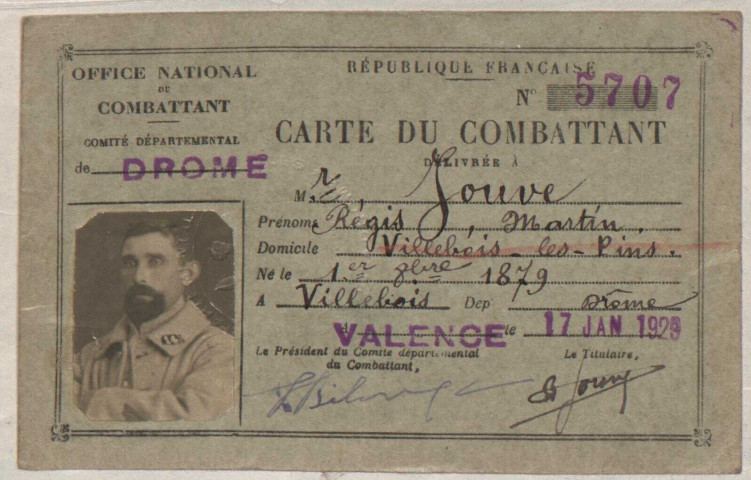 OFFICE NATIONAL
DU
COMBATTANT
COMITÉ DÉPARTEMENTAL
de DROME
RÉPUBLIQUE FRANÇAISE
N° 5707
CARTE DU COMBATTANT
DÉLIVRÉE À
M.r Jouve
Prénoms Régis, Martin.
Domicile Villebois-les-Pins.
Né le 1er 1879
A Villebois Dep Drôme
A VALENCE le 17 JAN 1929
Le Président du Comité départemental
du Combattant,
Le Titulaire,
Jouve